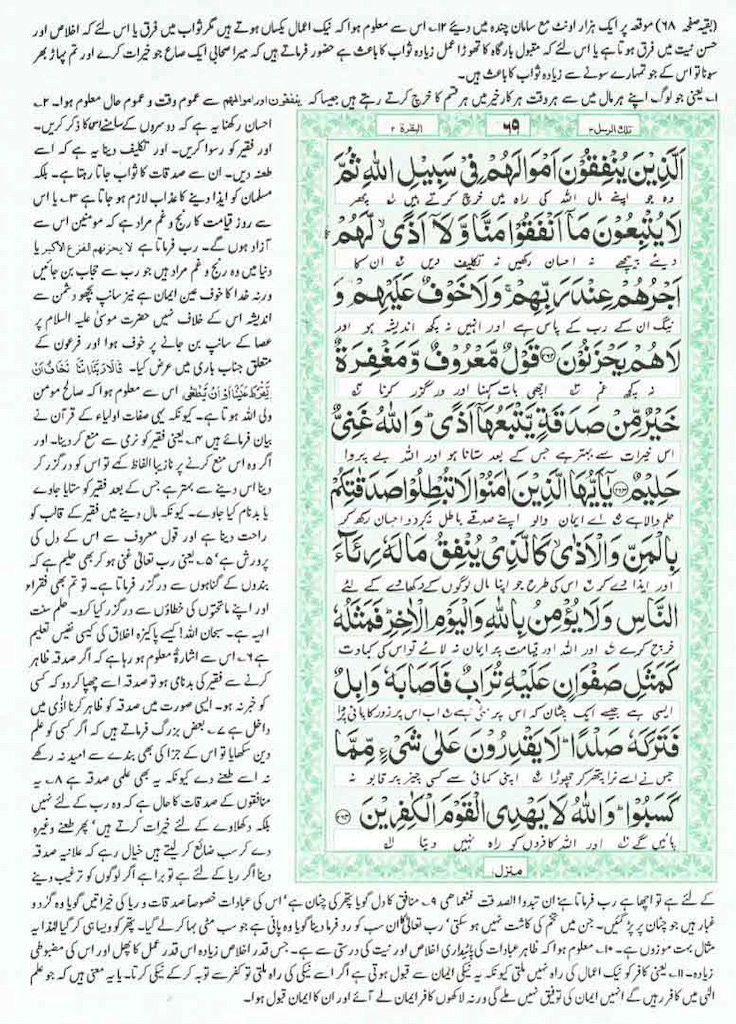 (بقیہ صفحہ ۶۸) موقعہ پر ایک ہزار اونٹ مع سامان چندہ میں دیئے ۱۲۔ اس سے معلوم ہوا کہ نیک اعمال یکساں ہوتے ہیں مگر ثواب میں فرق یا اس لئے کہ اخلاص اور
حسن نیت میں فرق ہوتا ہے یا اس لئے کہ مقبول بارگاہ کا تھوڑا عمل زیادہ ثواب کا باعث ہے حضور فرماتے ہیں کہ میرا صحابی ایک صاع جو خیرات کرے اور تم پہاڑ بھر
سونا تو اس کے جو تمہارے سونے سے زیادہ ثواب کا باعث ہیں۔
۱۔ یعنی جو لوگ اپنے ہر مال میں سے ہر وقت ہر کار خیر میں ہر قسم کا خرچ کرتے رہتے ہیں جیسا کہ ینفقون اور اموالھم سے عموم وقت و عموم حال معلوم ہوا۔ ۲۔
تلك الرسل ۳
۶۹
البقرة ۲
اَلَّذِیْنَ یُنْفِقُوْنَ اَمْوَالَهُمْ فِیْ سَبِیْلِ اللّٰهِ ثُمَّ
وہ جو اپنے مال اللہ کی راہ میں خرچ کرتے ہیں پھر
لَا یُتْبِعُوْنَ مَاۤ اَنْفَقُوْا مَنًّا وَّ لَاۤ اَذًی لَّهُمْ
دیئے پیچھے نہ احسان رکھیں نہ تکلیف دیں ان کا
اَجْرُهُمْ عِنْدَ رَبِّهِمْ وَ لَا خَوْفٌ عَلَیْهِمْ وَ
نیگ ان کے رب کے پاس ہے اور انہیں نہ کچھ اندیشہ ہو اور
لَا هُمْ یَحْزَنُوْنَ ۲۶۲ قَوْلٌ مَّعْرُوْفٌ وَّ مَغْفِرَةٌ
نہ کچھ غم اچھی بات کہنا اور درگزر کرنا
خَیْرٌ مِّنْ صَدَقَةٍ یَّتْبَعُهَاۤ اَذًی وَ اللّٰهُ غَنِیٌّ
اس خیرات سے بہتر ہے جس کے بعد ستانا ہو اور اللہ بے پروا
حَلِیْمٌ ۲۶۳ یٰۤاَیُّهَا الَّذِیْنَ اٰمَنُوْا لَا تُبْطِلُوْا صَدَقٰتِكُمْ
حلم والا ہے اے ایمان والو اپنے صدقے باطل نہ کر دو احسان رکھ کر
بِالْمَنِّ وَ الْاَذٰی كَالَّذِیْ یُنْفِقُ مَالَهٗ رِئَآءَ
اور ایذا دے کر اس کی طرح جو اپنا مال لوگوں کے دکھاوے کے لئے
النَّاسِ وَ لَا یُؤْمِنُ بِاللّٰهِ وَ الْیَوْمِ الْاٰخِرِ فَمَثَلُهٗ
خرچ کرے اور اللہ اور قیامت پر ایمان نہ لائے تو اس کی کہاوت
كَمَثَلِ صَفْوَانٍ عَلَیْهِ تُرَابٌ فَاَصَابَهٗ وَابِلٌ
ایسی ہے جیسے ایک چٹان کہ اس پر مٹی ہے اب اس پر زور کا پانی پڑا
فَتَرَكَهٗ صَلْدًا لَا یَقْدِرُوْنَ عَلٰی شَیْءٍ مِّمَّا
جس نے اسے نرا پتھر کر چھوڑا اپنی کمائی سے کسی چیز پر قابو نہ
كَسَبُوْا وَ اللّٰهُ لَا یَهْدِی الْقَوْمَ الْكٰفِرِیْنَ ۲۶۴
پائیں گے اور اللہ کافروں کو راہ نہیں دیتا
منزل ۱
احسان رکھنا یہ ہے کہ دوسروں کے سامنے اس کا ذکر کریں۔
اور فقیر کو رسوا کریں۔ اور تکلیف دینا یہ ہے کہ اسے
طعنہ دیں۔ ان سے صدقات کا ثواب جاتا رہتا ہے۔ بلکہ
مسلمان کو ایذا دینے کا عذاب لازم ہو جاتا ہے ۳۔ یا اس
سے روز قیامت کا رنج و غم مراد ہے کہ مومنین اس سے
آزاد ہوں گے۔ رب فرماتا ہے لا یحزنھم الفزع الاکبر یا
دنیا میں وہ رنج و غم مراد ہیں جو رب سے حجاب بن جائیں
ورنہ خدا کا خوف عین ایمان ہے نیز سانپ بچھو دشمن سے
اندیشہ اس کے خلاف نہیں حضرت موسیٰ علیہ السلام پر
عصا کے سانپ بن جانے پر خوف ہوا اور فرعون کے
متعلق جناب باری میں عرض کیا۔ قَالَا رَبَّنَا اِنَّنَا نَخَافُ اَنْ
یَّفْرُطَ عَلَیْنَا اَوْ اَنْ یَّطْغٰی اس سے معلوم ہوا کہ صالح مومن
ولی اللہ ہوتا ہے۔ کیونکہ یہی صفات اولیاء کے قرآن نے
بیان فرمائے ہیں ۴۔ یعنی فقیر کو نرمی سے منع کر دینا۔ اور
اگر وہ اس منع کرنے پر نازیبا الفاظ کہے تو اس کو درگزر کر
دینا اس دینے سے بہتر ہے جس کے بعد فقیر کو ستایا جاوے
یا بدنام کیا جاوے۔ کیونکہ مال دینے میں فقیر کے قالب کو
راحت دینا ہے اور قول معروف سے اس کے دل کی
پرورش ہے ۵۔ یعنی رب تعالیٰ غنی ہو کر بھی حلیم ہے کہ
بندوں کے گناہوں سے درگزر فرماتا ہے۔ تو تم بھی فقراء
اور اپنے ماتحتوں کی خطاؤں سے درگزر کیا کرو۔ حلم سنت
الہیہ ہے۔ سبحان اللہ! کیسے پاکیزہ اخلاق کی کیسی نفیس تعلیم
ہے ۶۔ اس سے اشارۃً معلوم ہو رہا ہے کہ اگر صدقہ ظاہر
کرنے سے فقیر کی بدنامی ہو تو صدقہ اسے چھپا کر دو کہ کسی
کو خبر نہ ہو۔ ایسی صورت میں صدقہ کو ظاہر کرنا اذٰی میں
داخل ہے ۷۔ بعض بزرگ فرماتے ہیں کہ اگر کسی کو علم
دین سکھایا تو اس کے جزا کی بھی بندے سے امید نہ رکھے
نہ اسے طعنے دے کیونکہ یہ بھی علمی صدقہ ہے ۸۔ یہ
منافقوں کے صدقات کا حال ہے کہ وہ رب کے لئے نہیں
بلکہ دکھلاوے کے لئے خیرات کرتے ہیں' پھر طعنے وغیرہ
دے کر سب ضائع کر لیتے ہیں خیال رہے کہ علانیہ صدقہ
دینا اگر ریا کے لئے ہے تو برا ہے اگر لوگوں کو ترغیب دینے
کے لئے ہے تو اچھا ہے رب فرماتا ہے ان تبدوا الصدقت فنعماھی ۹۔ منافق کا دل گویا پتھر کی چٹان ہے' اس کی عبادات خصوصاً صدقات و ریا کی خیراتیں گویا وہ گرد و
غبار ہیں جو چٹان پر پڑ گئیں۔ جن میں تخم کی کاشت نہیں ہو سکتی' رب تعالیٰ کا ان سب کو رد فرما دینا گویا وہ پانی ہے جو سب مٹی بہا کر لے گیا۔ پتھر کو ویسا ہی کر گیا لہٰذا یہ
مثال بہت موزوں ہے۔ ۱۰۔ معلوم ہوا کہ ظاہر عبادات کی پائیداری اخلاص اور نیت کی درستی سے ہے۔ جس قدر اخلاص زیادہ اس قدر عمل کا پھل اور اس کی مضبوطی
زیادہ۔ ۱۱۔ یعنی کافر کو نیک اعمال کی راہ نہیں ملتی کیونکہ یہ نیکی ایمان سے قبول ہوتی ہے اگر اسے نیکی کی راہ ملتی تو کفر سے توبہ کر کے نیکی کرتا۔ یا یہ معنی ہیں کہ جو علم
الٰہی میں کافر رہیں گے انہیں ایمان کی توفیق نہیں ملے گی ورنہ لاکھوں کافر ایمان لے آئے اور ان کا ایمان قبول ہوا۔